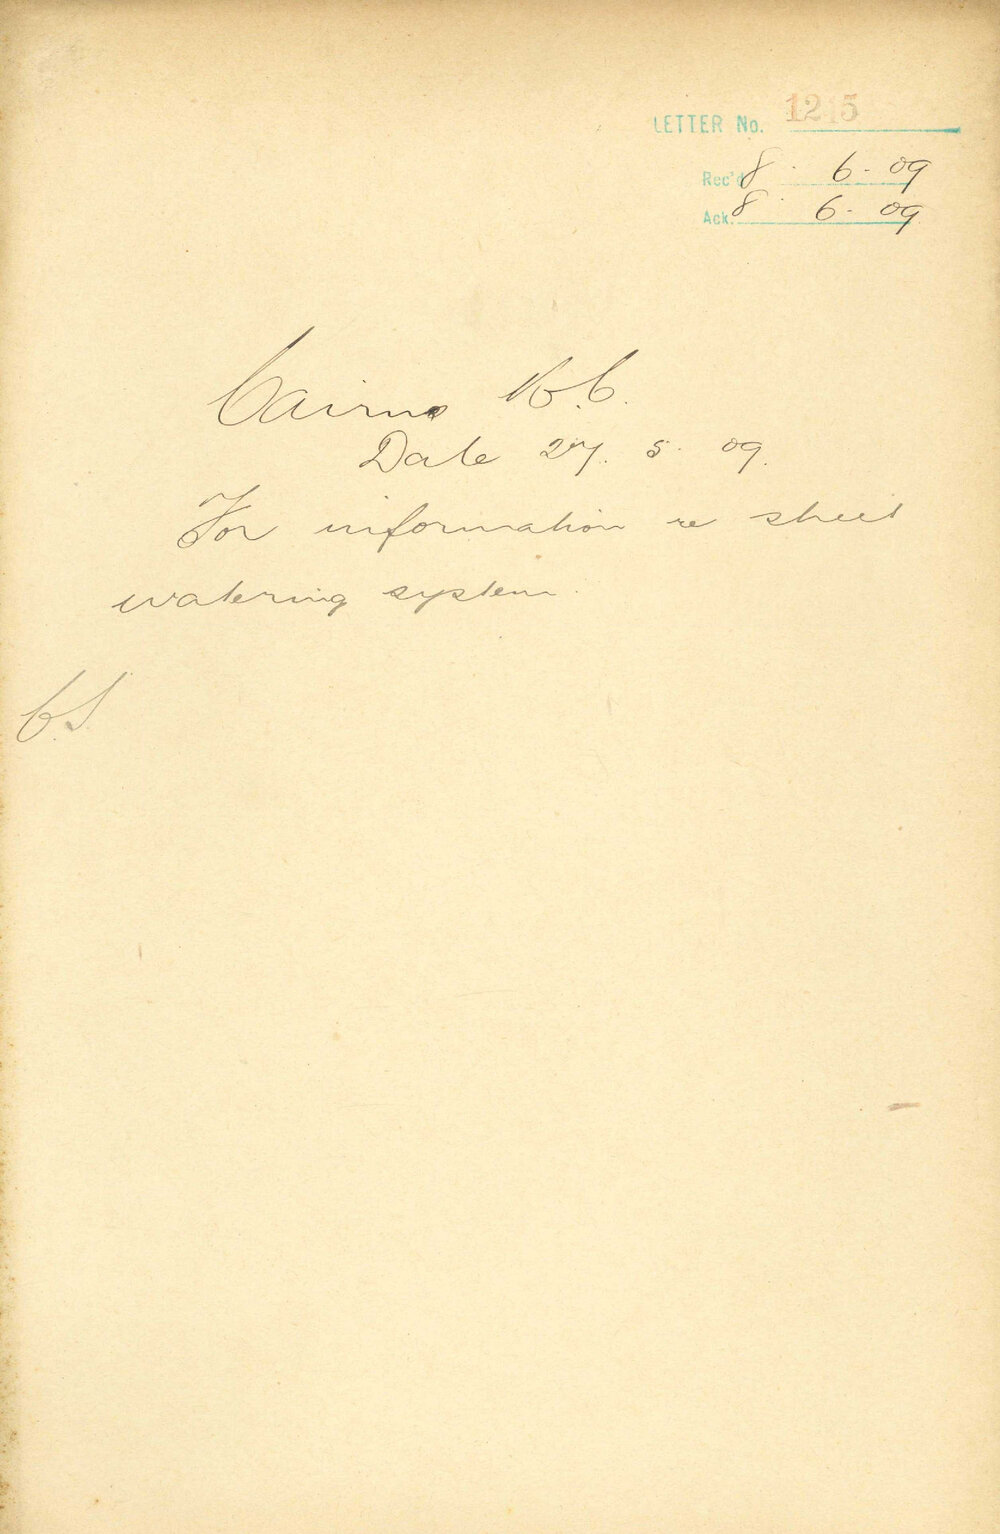 LETTER No. 1215
Rec'd 8 . 6 . 09
Ack. 8 . 6 . 09
Cairns
Date 27. 5. 09.
For information re street
watering system.
C.S.